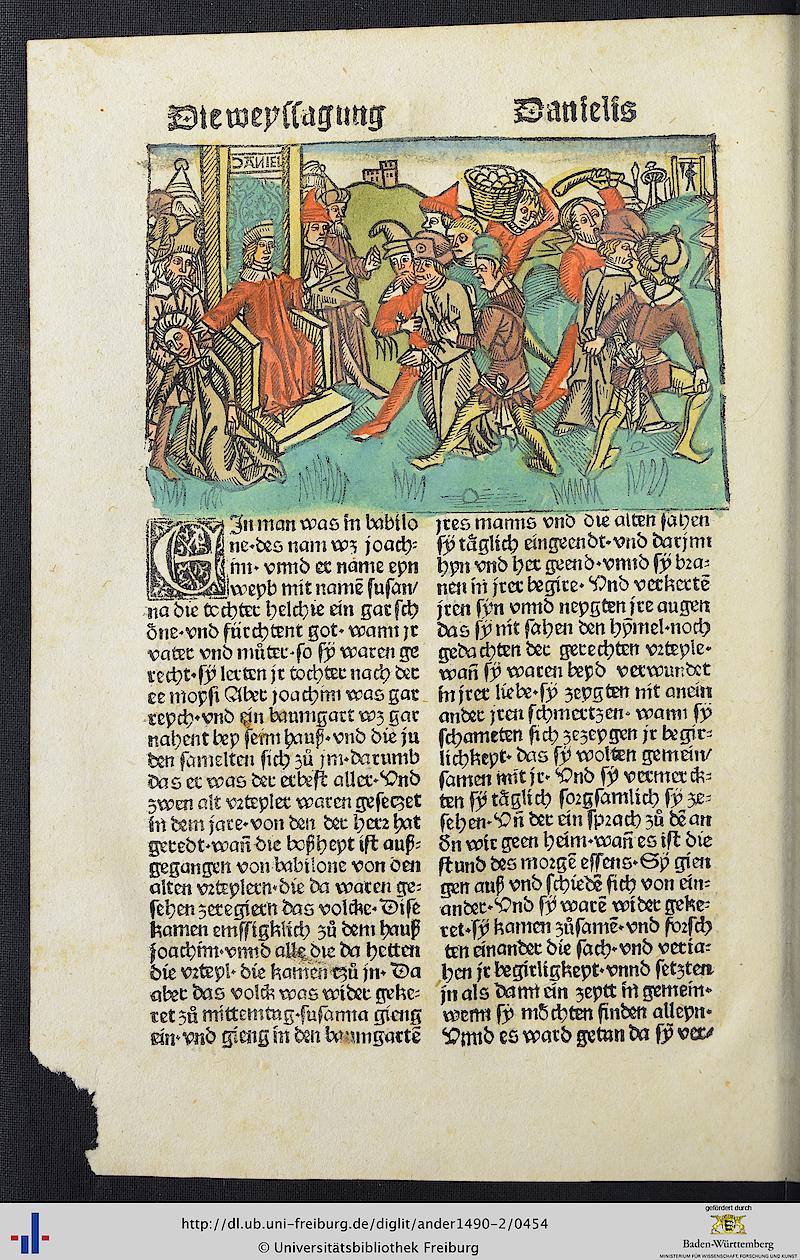 Die weyssagung
Danielis
DANIEL
EIn man was in babilo
ne·des nam wz joach⸗
im· vnnd er name eyn
weyb mit namē susan/
na die tochter helchie ein gar sch
öne·vnd fürchtent got· wann jr
vater vnd můter·so sÿ waren ge
recht·sÿ lerten jr tochter nach der
ee moysi Aber joachim was gar
reych·vnd ein baumgart wz gar
nahent bey seim hauß·vnd die ju
den samelten sich zů jm·darumb
das er was der erbest aller·Vnd
zwen alt vrteyler waren gesetzet
in dem jare·von den der herr hat
geredt·wañ die boßheyt ist auß⸗
gegangen von babilone von den
alten vrteylern·die da waren ge⸗
sehen zeregiern das volcke·Dise
kamen emssigklich zů dem hauß
joachim·vnnd alle die da hetten
die vrteyl· die kamen tzů jn· Da
aber das volck was wider geke⸗
ret zů mittemtag·susanna gieng
ein·vnd gieng in den baumgartē
jres manns vnd die alten sahen
sÿ täglich eingeendt·vnd darjnn
hyn vnd her geend·vnnd sÿ bra⸗
nen in jrer begire· Vnd verkertē
jren syn vnnd neygten jre augen
das sÿ nit sahen den hÿmel·noch
gedachten der gerechten vrteyle·
wañ sÿ waren beyd verwundet
in jrer liebe·sÿ zeygten nit anein
ander jren schmertzen· wann sÿ
schameten sich zezeygen jr begir⸗
lichkeyt· das sÿ wolten gemein/
samen mit jr· Vnd sÿ vermerck⸗
ten sÿ täglich sorgsamlich sÿ ze⸗
sehen·Vñ der ein sprach zů dē an
dn wir geen heim·wañ es ist die
stund des morgē essens·Sÿ gien
gen auß vnd schiedē sich von ein⸗
ander·Vnd sÿ warē wider geke⸗
ret·sÿ kamen zůsamē·vnd forsch
ten einander die sach·vnd veria⸗
hen jr begirligkeyt·vnnd setzten
jn als dann ein zeytt in gemein·
wenn sÿ möchten finden alleyn·
Vnnd es ward getan da sÿ ver/
gefördert durch
http://dl.ub.uni-freiburg.de/diglit/ander1490-2/0454
© Universitätsbibliothek Freiburg
Baden-Württemberg
MINISTERIUM FÜR WISSENSCHAFT, FORSCHUNG UND KUNST